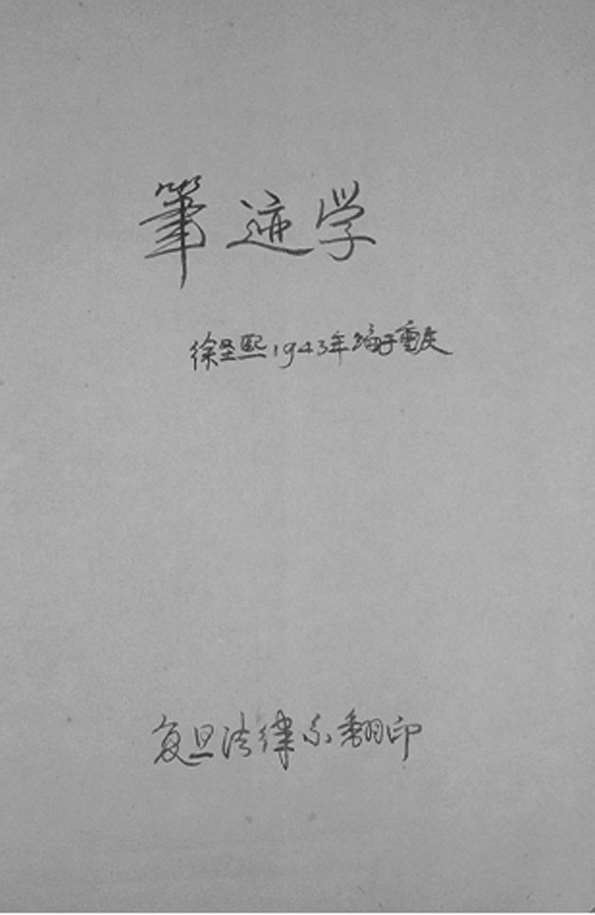 筆迹学
徐圣熙1943年编于重庆
复旦法律系翻印